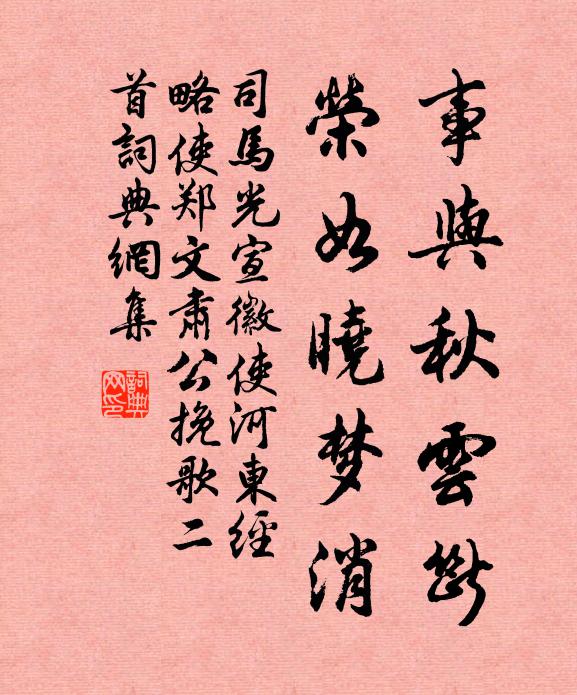 事與秋雲斷
榮如曉梦消
司馬光宣徽使河東經
略使郑文肅公挽歌二
首詞典網集
詞典
网印